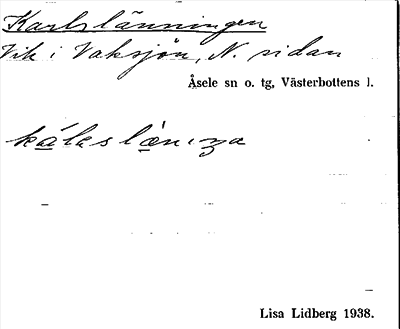 Karlslänningen
Vik i Vaksjön, N. sidan
Åsele sn o. tg, Västerbottens l.
Lisa Lidberg 1938.